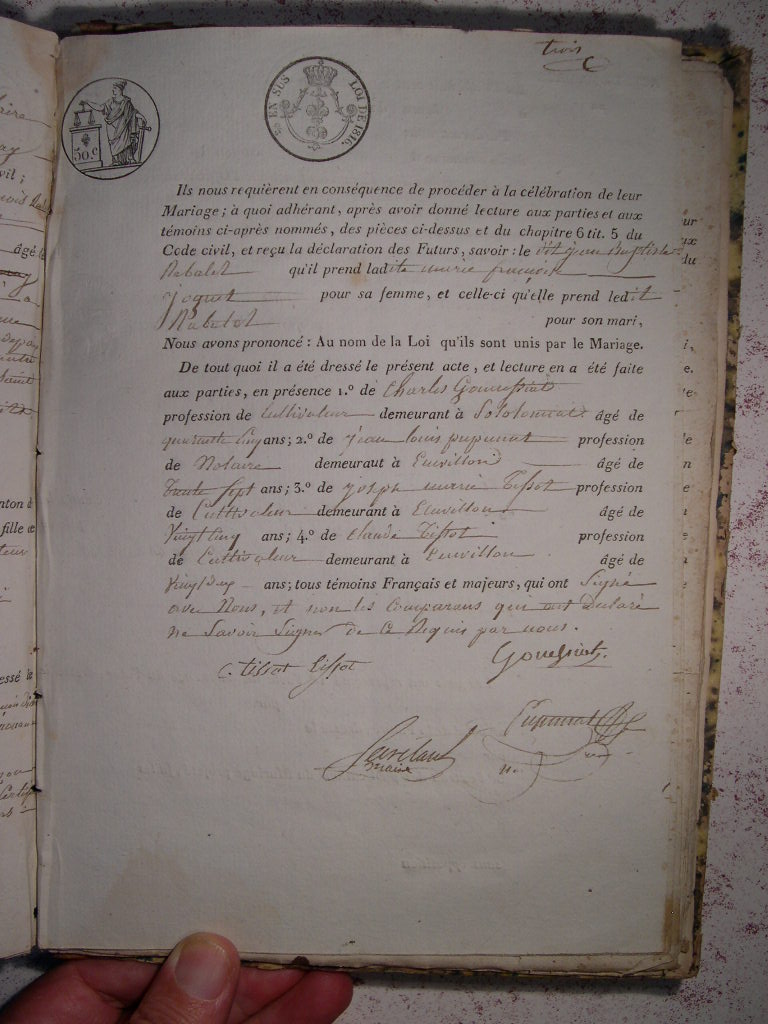 trois
50.c
EN SUS LOI DE 1816.
Ils nous requièrent en conséquence de procéder à la célébration de leur
Mariage; à quoi adhérant, après avoir donné lecture aux parties et aux
témoins ci-après nommés, des pièces ci-dessus et du chapitre 6 tit. 5 du
Code civil, et reçu la déclaration des Futurs, savoir: le dit jean Baptiste
Rabalet qu'il prend ladite marie françoise
pour sa femme, et celle-ci qu'elle prend ledit
Rabelet pour son mari,
Nous avons prononcé: Au nom de la Loi qu'ils sont unis par le Mariage.
De tout quoi il a été dressé le présent acte, et lecture en a été faite
aux parties, en présence 1.º de Charles
profession de Cultivateur demeurant à âgé de
quarante Cinq ans; 2.º de jean louis pupunat profession
de Notaire demeuraut à Cuvillon âgé de
Trente Sept ans; 3.º de joseph marie Tissot profession
de Cultivateur demeurant à Cuvillon âgé de
Vingt Cinq ans; 4.º de Claude Tissot profession
de Cultivateur demeurant à Cuvillon âgé de
Vingt deux ans; tous témoins Français et majeurs, qui ont Signé
avec Nous, et non les Comparans qui ont Déclaré
ne Savoir Signer de Ce Requis par nous.
C. tissot tissot
Pupunat
maire